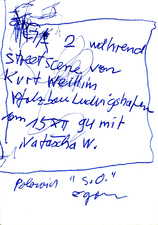 2 während
street scene von
Kurt Weill in
Pfalzbau Ludwigshafen
am 15 XII 94 mit
Natascha W.
"S.O."